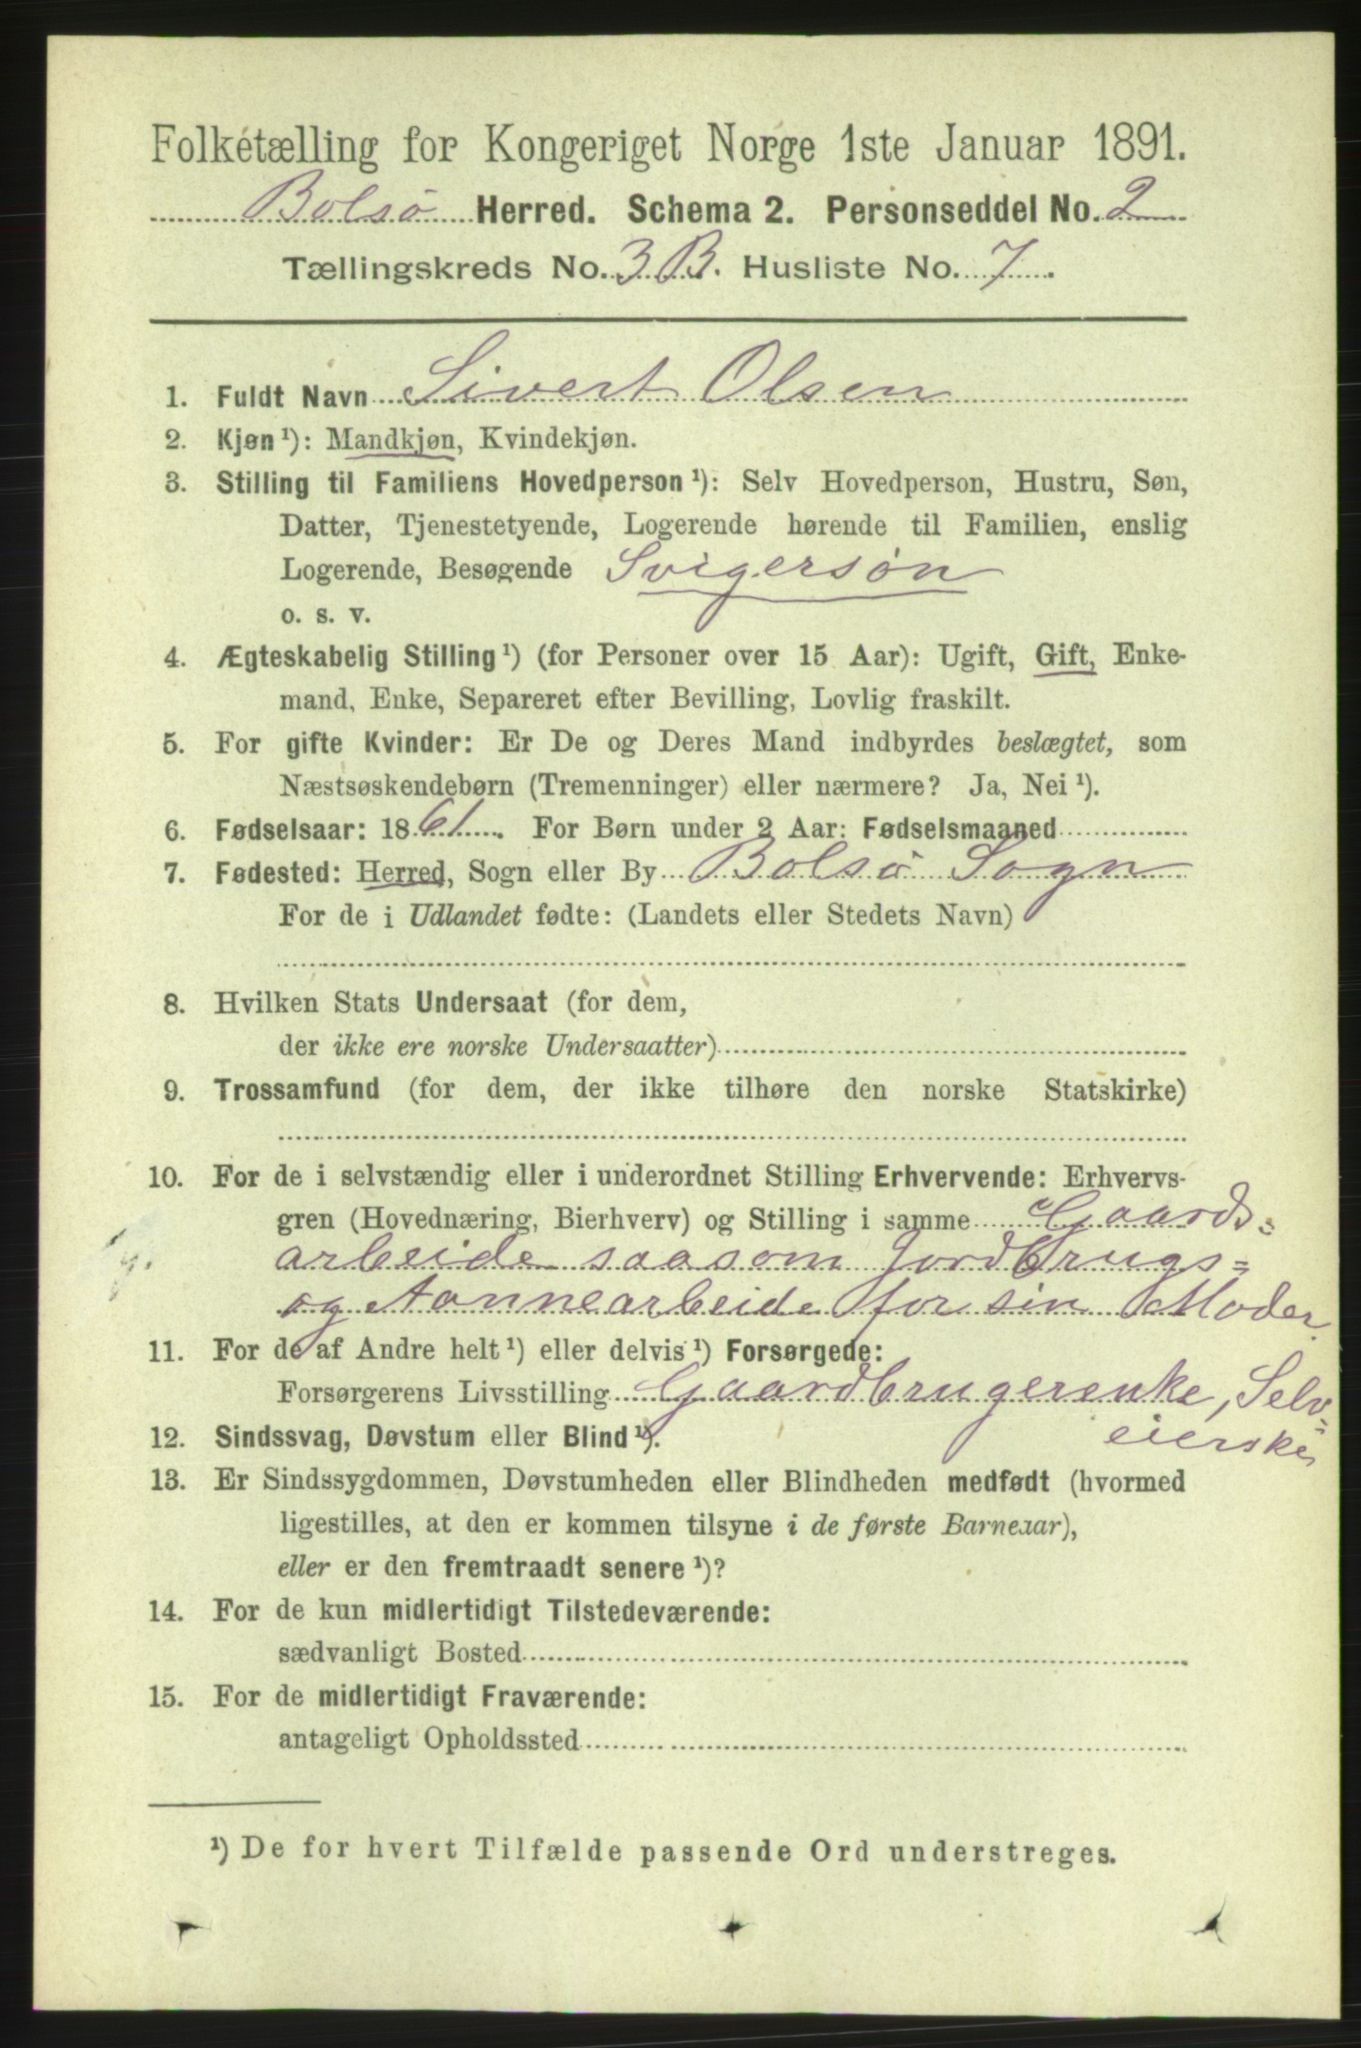 Folketælling for Kongeriget Norge 1ste Januar 1891.
Bolsø Herred. Schema 2. Personseddel No. 2
Tællingskreds No. 3 B. Husliste No. 7.
1. Fuldt Navn Sivert Olsen
2. Kjøn ¹): Mandkjøn, Kvindekjøn.
3. Stilling til Familiens Hovedperson ¹): Selv Hovedperson, Hustru, Søn,
Datter, Tjenestetyende, Logerende hørende til Familien, enslig
Logerende, Besøgende Svigersøn
o. s. v.
4. Ægteskabelig Stilling ¹) (for Personer over 15 Aar): Ugift, Gift, Enke-
mand, Enke, Separeret efter Bevilling, Lovlig fraskilt.
5. For gifte Kvinder: Er De og Deres Mand indbyrdes beslægtet, som
Næstsøskendebørn (Tremenninger) eller nærmere? Ja, Nei ¹).
6. Fødselsaar: 1861. For Børn under 2 Aar: Fødselsmaaned
7. Fødested: Herred, Sogn eller By Bolsø Sogn
For de i Udlandet fødte: (Landets eller Stedets Navn)
8. Hvilken Stats Undersaat (for dem,
der ikke ere norske Undersaatter)
9. Trossamfund (for dem, der ikke tilhøre den norske Statskirke)
10. For de i selvstændig eller i underordnet Stilling Erhvervende: Erhvervs-
gren (Hovednæring, Bierhverv) og Stilling i samme Gaards=
arbeide saasom Jordbrugs=
og Aannearbeide for sin Moder.
11. For de af Andre helt ¹) eller delvis ¹) Forsørgede:
Forsørgerens Livsstilling Gaardbrugerenke, Selv=
eierske
12. Sindssvag, Døvstum eller Blind ¹).
13. Er Sindssygdommen, Døvstumheden eller Blindheden medfødt (hvormed
ligestilles, at den er kommen tilsyne i de første Barneaar),
eller er den fremtraadt senere ¹)?
14. For de kun midlertidigt Tilstedeværende:
sædvanligt Bosted
15. For de midlertidigt Fraværende:
antageligt Opholdssted
¹) De for hvert Tilfælde passende Ord understreges.